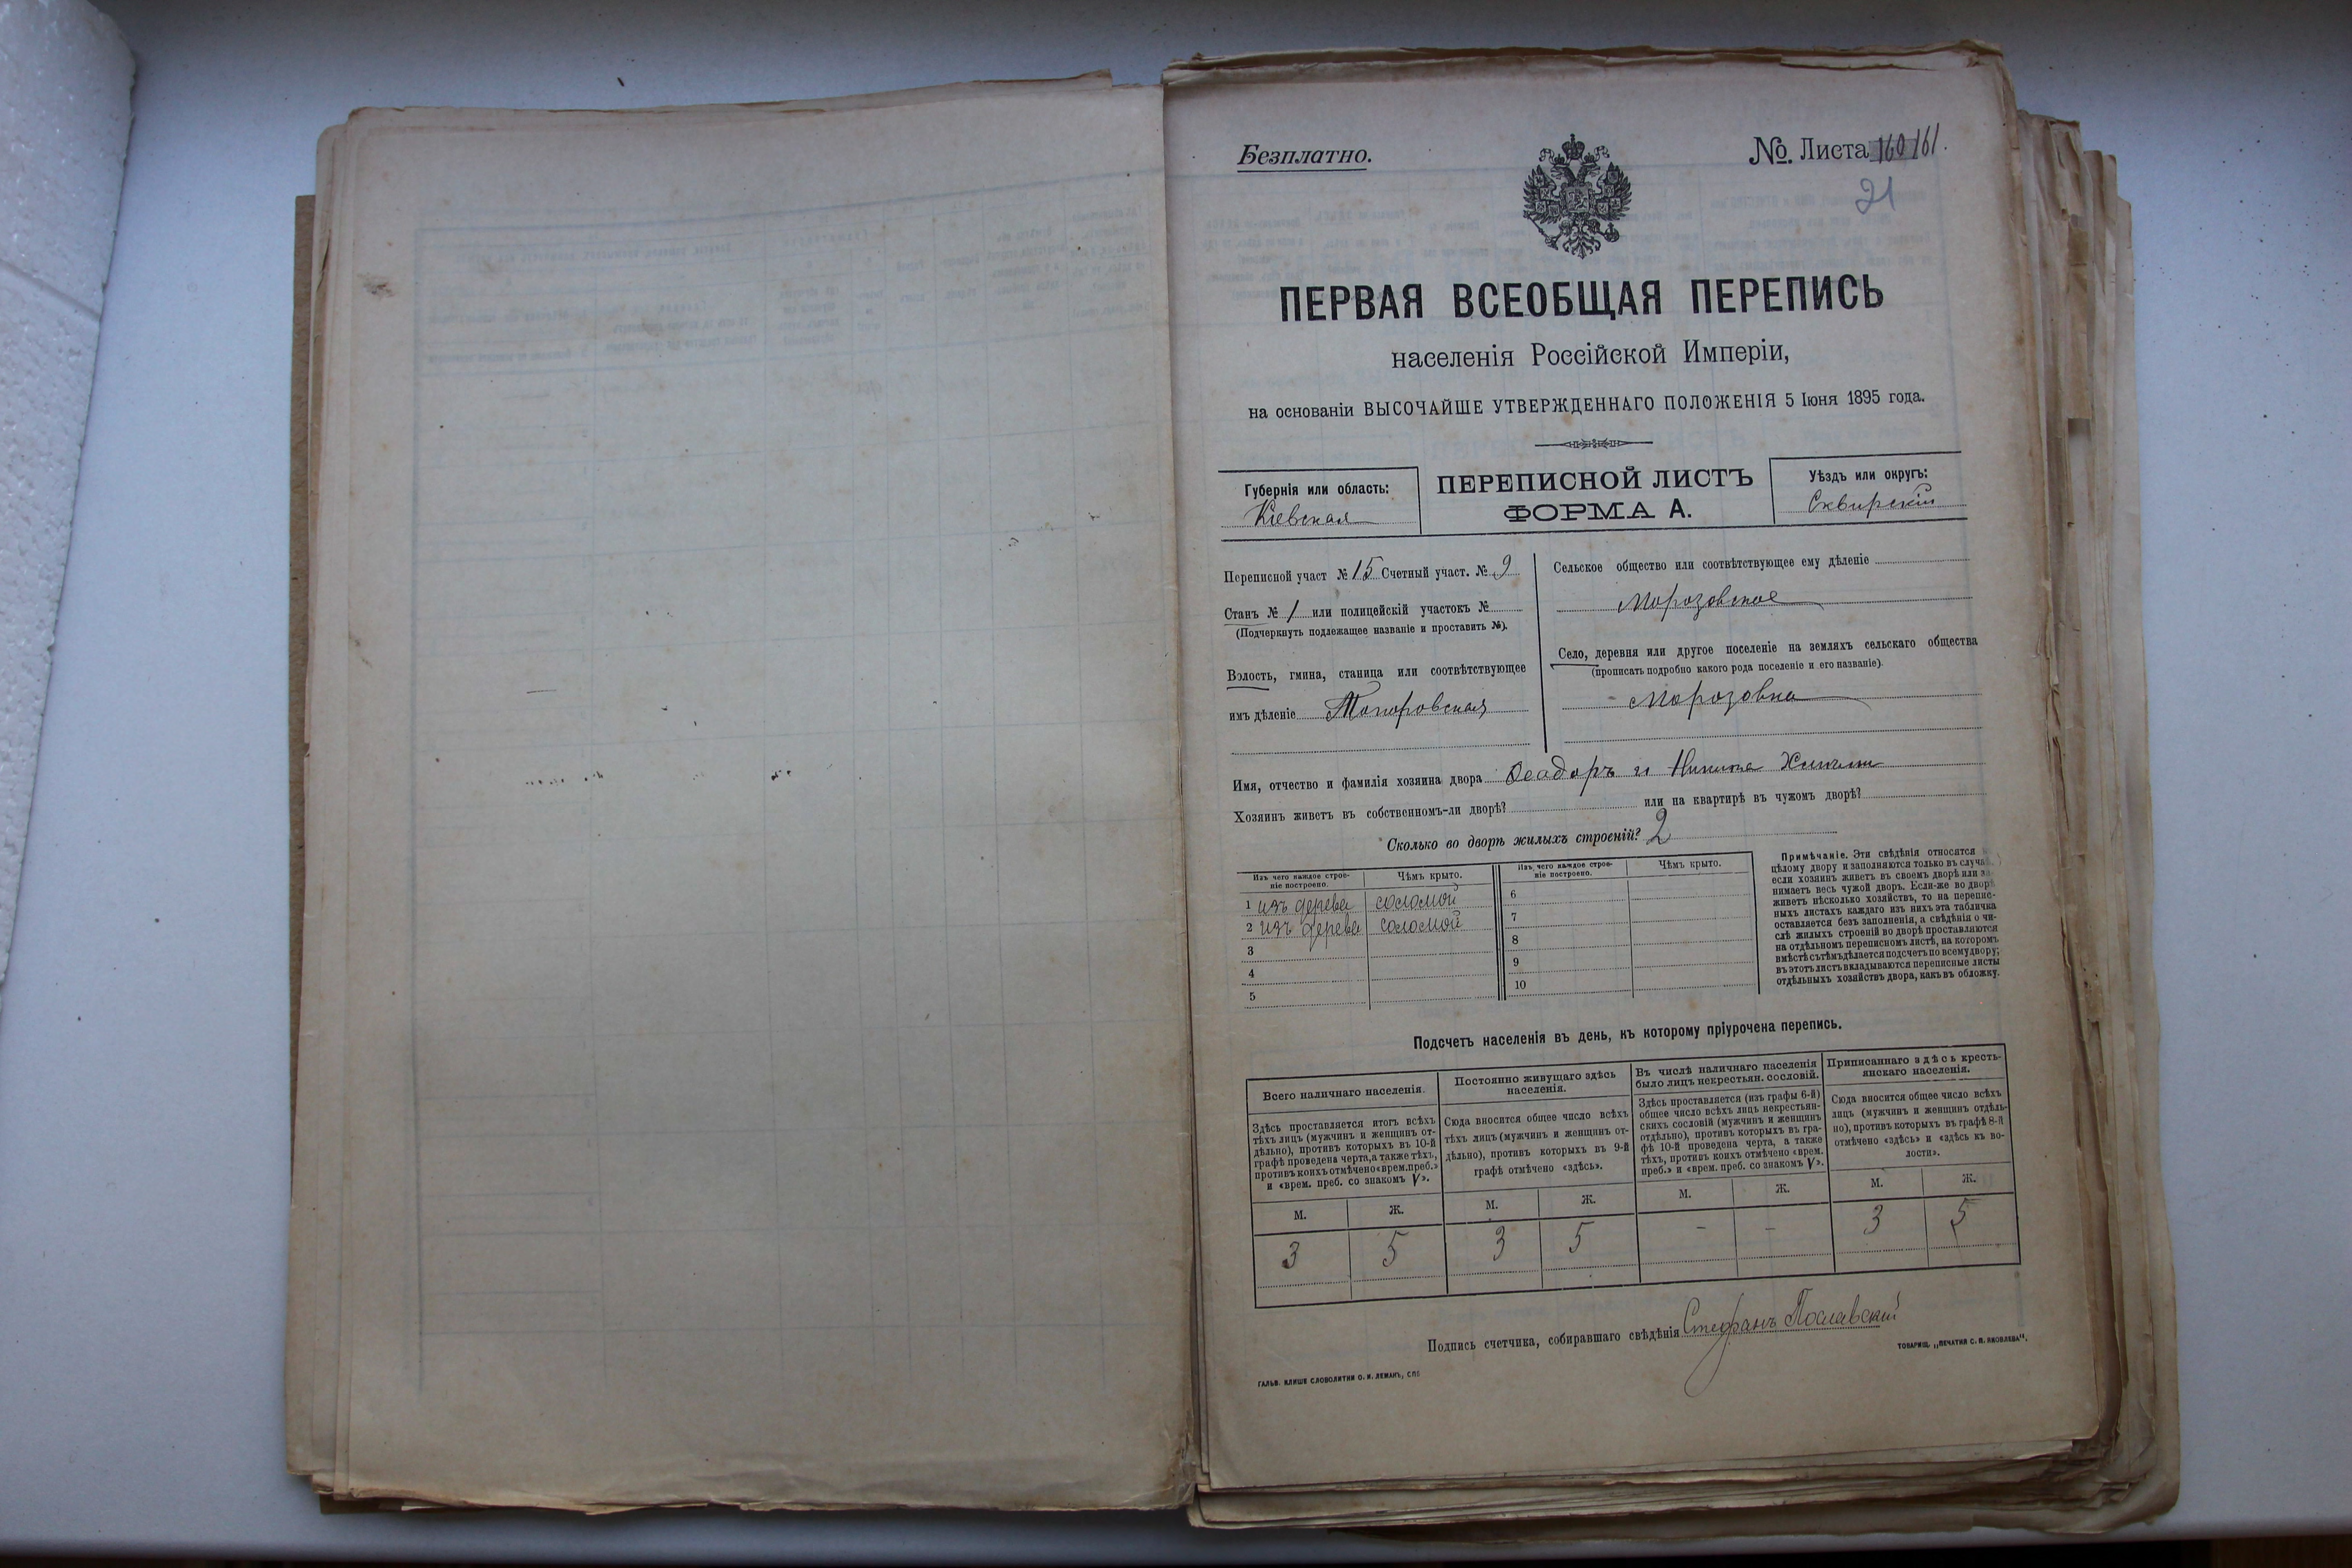 Безплатно.
№. Листа 160 161.
21
ПЕРВАЯ ВСЕОБЩАЯ ПЕРЕПИСЬ
населенія Россійской Имперіи,
на основаніи ВЫСОЧАЙШЕ УТВЕРЖДЕННАГО ПОЛОЖЕНІЯ 5 Іюня 1895 года.
Губернія или область:
Кіевская
ПЕРЕПИСНОЙ ЛИСТЪ
ФОРМА А.
Уѣздъ или округъ:
Сквирскій
Переписной участ № 15 Счетный участ. № 9
Станъ № 1 или полицейскій участокъ №
(Подчеркнуть подлежащее названіе и проставить №).
Волость, гмина, станица или соотвѣтствующее
имъ дѣленіе Топоровская
Сельское общество или соотвѣтствующее ему дѣленіе
Морозовское
Село, деревня или другое поселеніе на земляхъ сельскаго общества
(прописать подробно какого рода поселеніе и его названіе).
Морозовка
Имя, отчество и фамилія хозяина двора Феодоръ и Никита
Хозяинъ живетъ въ собственномъ-ли дворѣ? или на квартирѣ въ чужомъ дворѣ?
Сколько во дворѣ жилыхъ строеній? 2
Изъ чего каждое строе-
ніе построено.
Чѣмъ крыто.
1 изъ дерева соломой
2 изъ дерева соломой
3
4
5
Изъ чего каждое строе-
ніе построено.
Чѣмъ крыто.
6
7
8
9
10
Примѣчаніе. Эти свѣдѣнія относятся
цѣлому двору и заполняются только въ случаѣ,
если хозяинъ живетъ въ своемъ дворѣ или за-
нимаетъ весь чужой дворъ. Если-же во дворѣ
живетъ нѣсколько хозяйствъ, то на перепис-
ныхъ листахъ каждаго изъ нихъ эта табличка
оставляется безъ заполненія, а свѣдѣнія о чи-
слѣ жилыхъ строеній во дворѣ проставляются
на отдѣльномъ переписномъ листѣ, на которомъ
вмѣстѣ съ тѣмъ дѣлается подсчетъ по всему двору;
въ этотъ листъ вкладываются переписные листы
отдѣльныхъ хозяйствъ двора, какъ въ обложку.
Подсчетъ населенія въ день, къ которому пріурочена перепись.
Всего наличнаго населенія.
Здѣсь проставляется итогъ всѣхъ
тѣхъ лицъ (мужчинъ и женщинъ от-
дѣльно), противъ которыхъ въ 10-й
графѣ проведена черта, а также тѣхъ,
противъ коихъ отмѣчено «врем. преб.»
и «врем. преб. со знакомъ V».
М. Ж.
3 5
Постоянно живущаго здѣсь
населенія.
Сюда вносится общее число всѣхъ
тѣхъ лицъ (мужчинъ и женщинъ от-
дѣльно), противъ которыхъ въ 9-й
графѣ отмѣчено «здѣсь».
М. Ж.
3 5
Въ числѣ наличнаго населенія
было лицъ некрестьян. сословій.
Здѣсь проставляется (изъ графы 6-й)
общее число всѣхъ лицъ некрестьян-
скихъ сословій (мужчинъ и женщинъ
отдѣльно), противъ которыхъ въ гра-
фѣ 10-й проведена черта, а также
тѣхъ, противъ коихъ отмѣчено «врем.
преб.» и «врем. преб. со знакомъ V».
М. Ж.
- -
Приписаннаго здѣсь кресть-
янскаго населенія.
Сюда вносится общее число всѣхъ
лицъ (мужчинъ и женщинъ отдѣль-
но), противъ которыхъ въ графѣ 8-й
отмѣчено «здѣсь» и «здѣсь къ во-
лости».
М. Ж.
3 5
Подпись счетчика, собиравшаго свѣдѣнія Стефанъ Пославскій
ГАЛЬВ. КЛИШЕ СЛОВОЛИТНИ О. И. ЛЕМАНЪ, СПБ
ТОВАРИЩ. „ПЕЧАТНЯ С. П. ЯКОВЛЕВА".